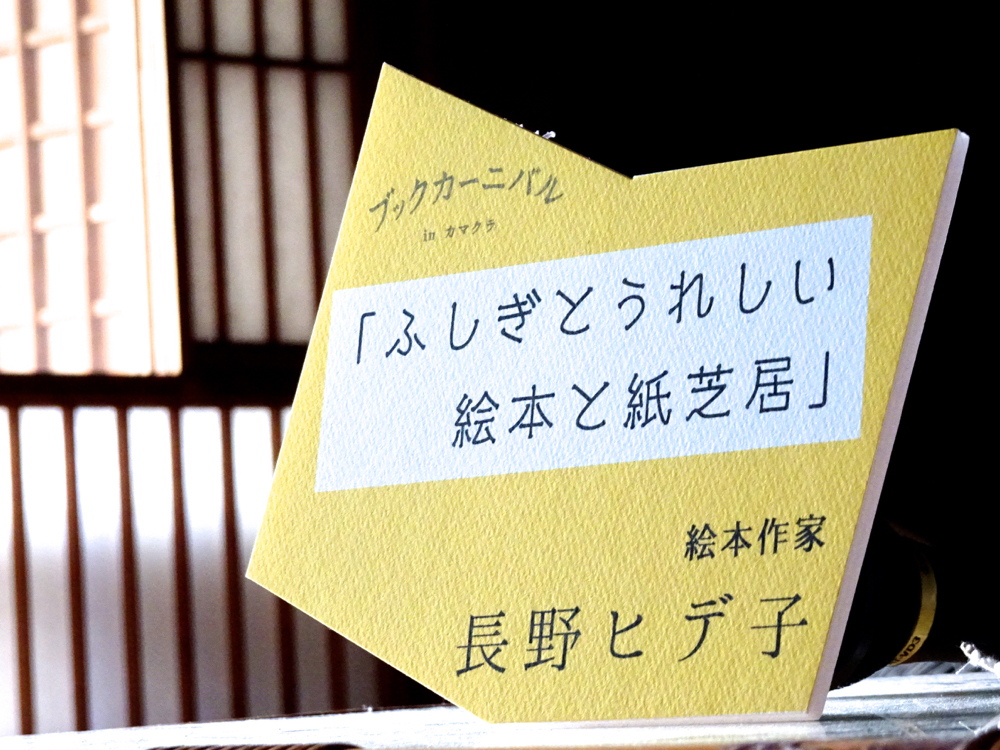 ブックカーニバル
in カマクラ
「ふしぎとうれしい
絵本と紙芝居」
絵本作家
長野ヒデ子